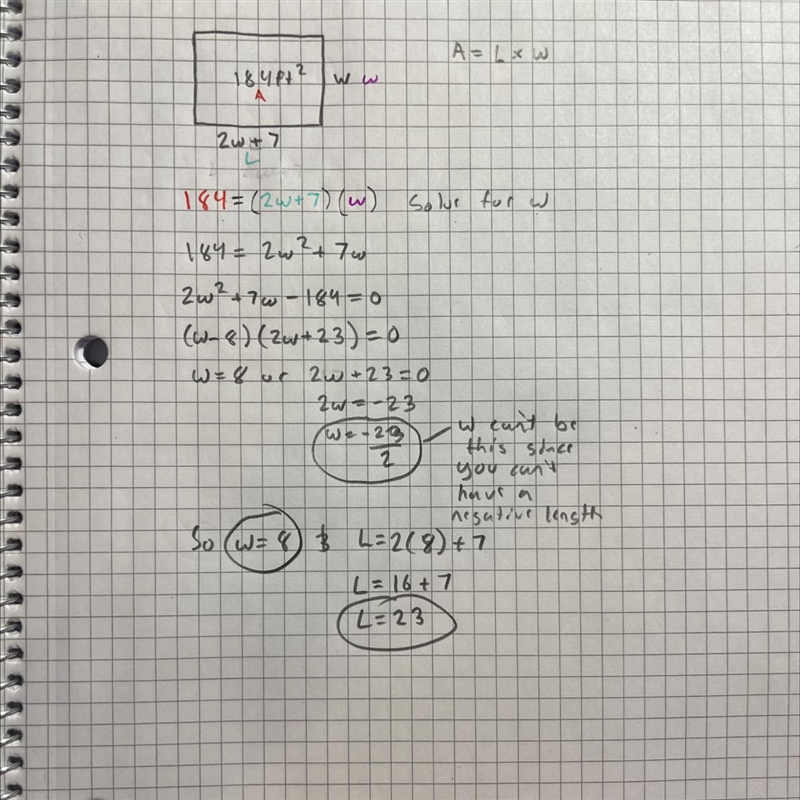 184ft² w w
A
A = L × w
2w+7
L
184=(2w+7)(w) Solve for w
184= 2w²+7w
2w²+7w-184=0
(w-8)(2w+23)=0
w=8 or 2w+23=0
2w=-23
w=-23/2
w can't be
this since
you can't
have a
negative length
So w=8 & L=2(8)+7
L=16+7
L=23